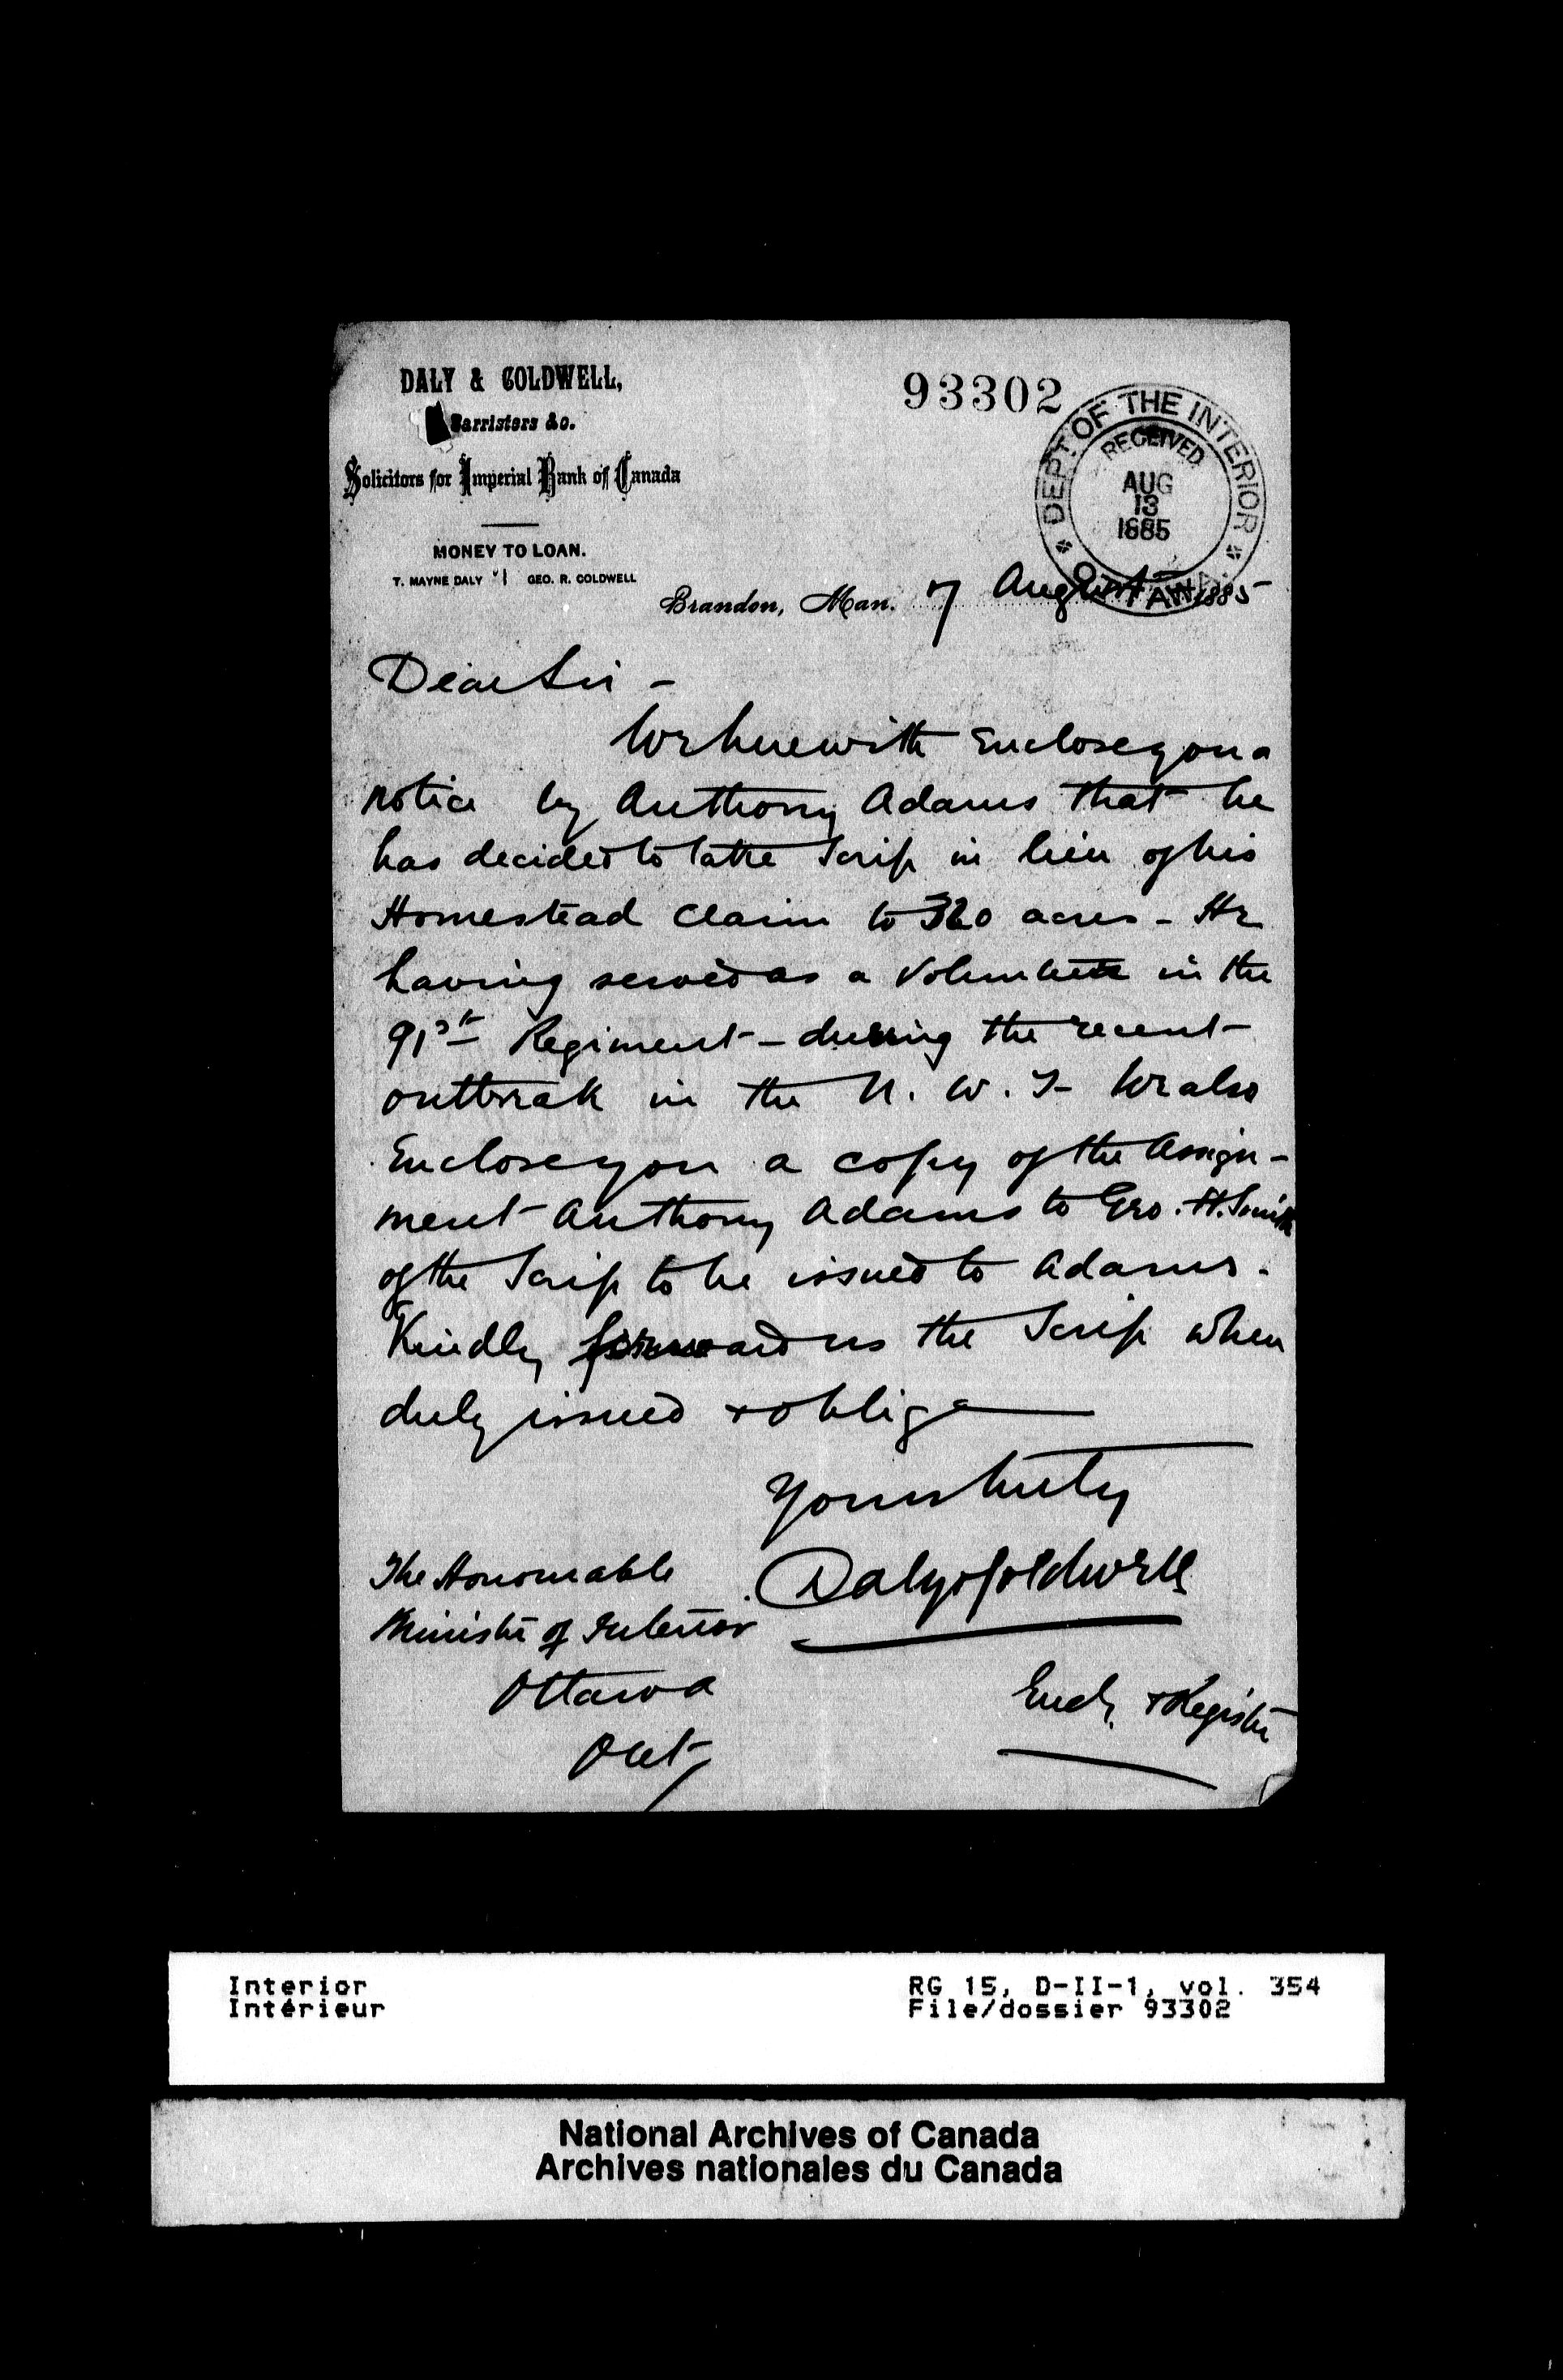 DALY & COLDWELL,
Barristers &c.
Solicitors for Imperial Bank of Canada
MONEY TO LOAN.
T. MAYNE DALY GEO. R. COLDWELL
93302
DEPT OF THE INTERIOR
RECEIVED
AUG
13
1885
OTTAWA
Brandon, Man. 7 August 1885
Dear Sir -
We herewith Enclose you a
notice by Anthony Adams that he
has decided to take Scrip in lieu of his
Homestead Claim to 320 acres - He
having served as a Volunteer in the
91st Regiment - during the recent
outbreak in the N. W. T - We also
Enclose you a copy of the Assign-
ment Anthony Adams to Geo. H. Smith
of the Scrip to be issued to Adams.
Kindly forward us the Scrip when
duly issued & oblige
Yours truly
Daly & Coldwell
The Honourable
Minister of Interior
Ottawa
Ont
Encl. & Register
Interior
Intérieur
RG 15, D-II-1, vol. 354
File/dossier 93302
National Archives of Canada
Archives nationales du Canada